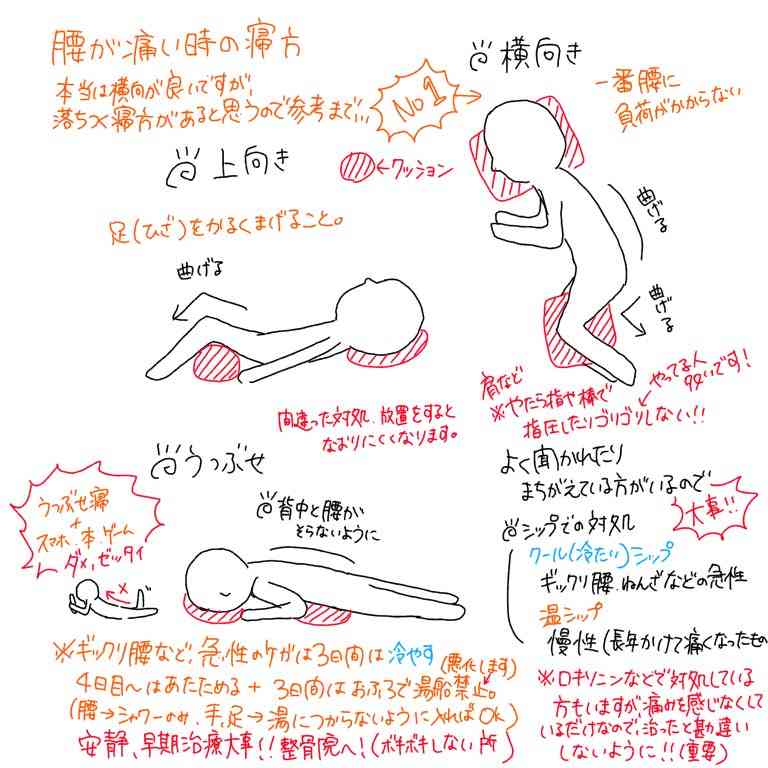 腰が痛い時の寝方
本当は横向が良いですが、
落ちつく寝方があると思うので参考まで、、
No1
横向き
一番腰に
負荷がかからない
上向き
←クッション
足(ひざ)をかるくまげること。
曲げる
曲げる
曲げる
間違った対処、放置をすると
なおりにくくなります。
肩など
※やたら指や棒で
指圧したりゴリゴリしない!!
やってる人
多いです!
うつぶせ
うつぶせ寝
+
スマホ、本、ゲーム
ダメ、ゼッタイ
×
背中と腰が
そらないように
よく聞かれたり
まちがえている方がいるので
大事!!
シップでの対処
クール(冷たい)シップ
ギックリ腰、ねんざなどの急性
温シップ
慢性(長年かけて痛くなったもの
※ギックリ腰など、急性のケガは3日間は冷やす
(悪化します)
4日目〜はあたためる + 3日間はおふろで湯船禁止。
(腰→シャワーのみ、手、足→湯につからないように入ればOK)
安静、早期治療大事!!整骨院へ!(ボキボキしない所)
※ロキソニンなどで対処している
方もいますが、痛みを感じなくして
いるだけなので、治ったと勘違い
しないように!!(重要)